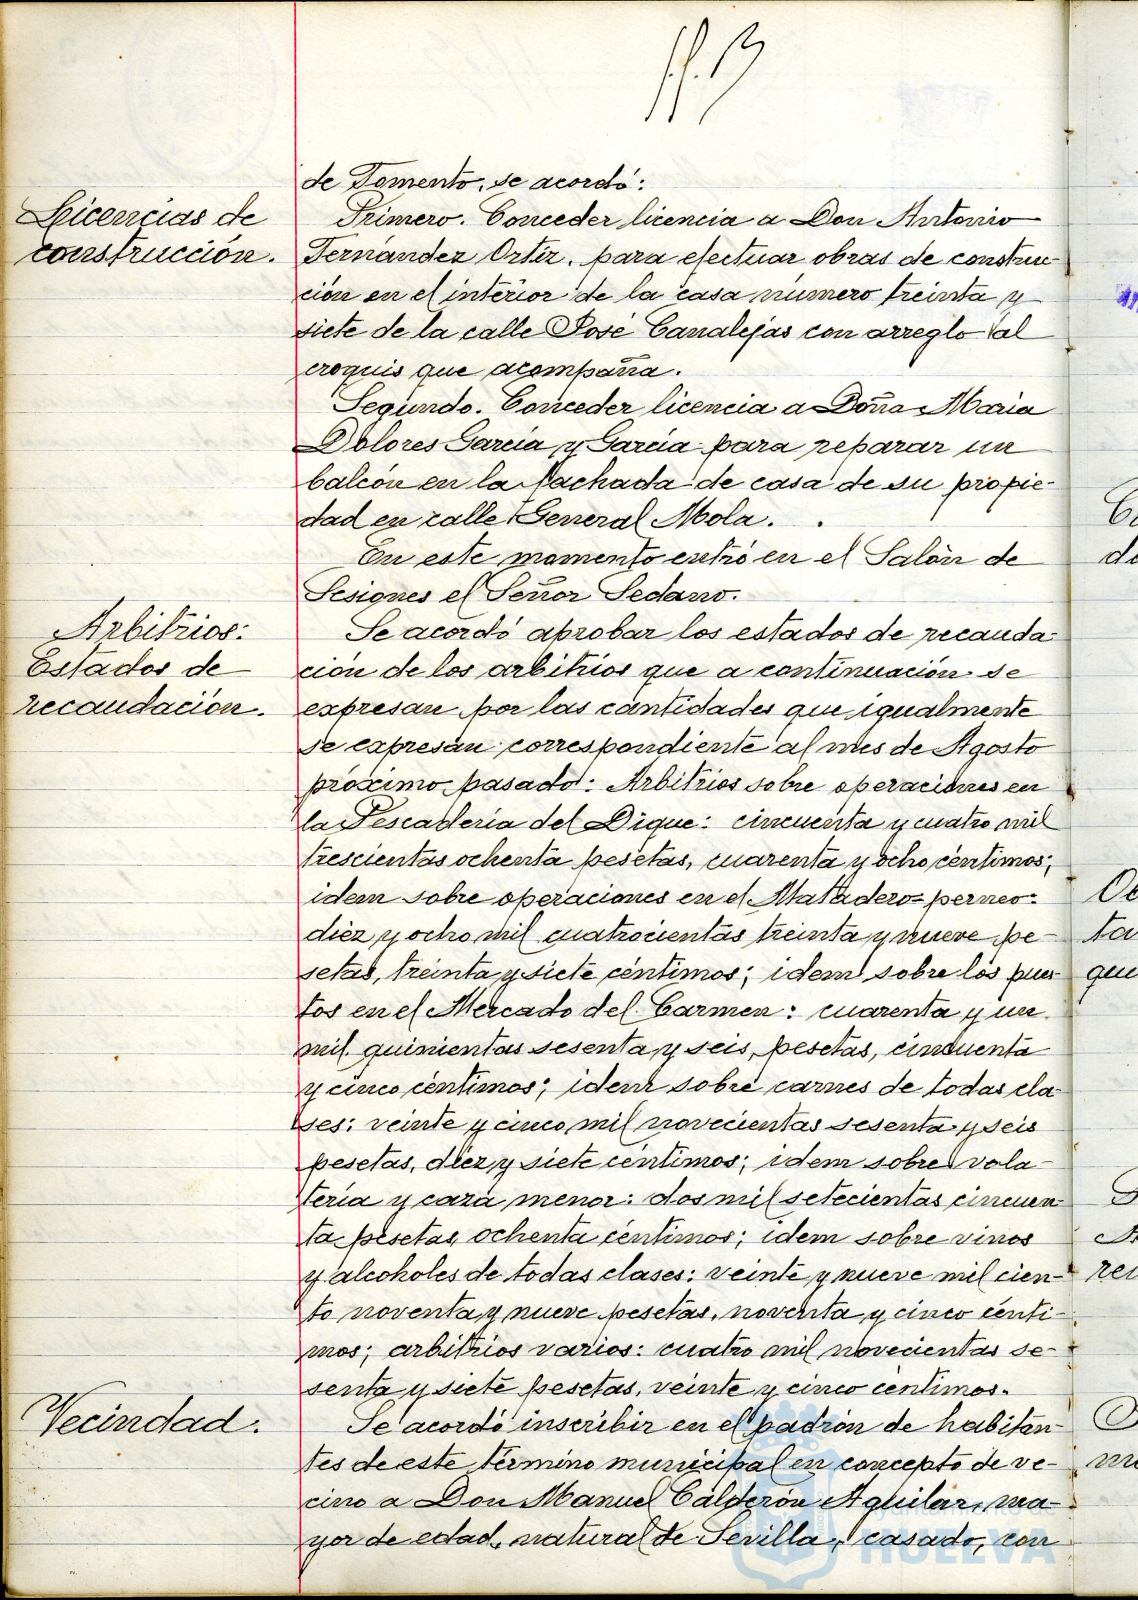 de Fomento, se acordó:
Licencias de
construcción.
Primero. Conceder licencia a Don Antonio
Fernández Ortiz, para efectuar obras de construc-
ción en el interior de la casa número treinta y
siete de la calle José Canalejas con arreglo al
croquis que acompaña.
Segundo. Conceder licencia a Doña María
Dolores García y García para reparar un
balcón en la fachada de casa de su propie-
dad en calle General Mola.
En este momento entró en el Salón de
Sesiones el Señor Sedano.
Arbitrios:
Estados de
recaudación.
Se acordó aprobar los estados de recauda-
ción de los arbitrios que a continuación se
expresan por las cantidades que igualmente
se expresan correspondiente al mes de Agosto
próximo pasado: Arbitrios sobre operaciones en
la Pescadería del Dique: cincuenta y cuatro mil
trescientas ochenta pesetas, cuarenta y ocho céntimos;
idem sobre operaciones en el Matadero= perneo:
diez y ocho mil cuatrocientas treinta y nueve pe-
setas, treinta y siete céntimos; idem sobre los pues-
tos en el Mercado del Carmen: cuarenta y un
mil quinientas sesenta y seis pesetas, cincuenta
y cinco céntimos; idem sobre carnes de todas cla-
ses: veinte y cinco mil novecientas sesenta y seis
pesetas, diez y siete céntimos; idem sobre vola-
tería y caza menor: dos mil setecientas cincuen-
ta pesetas ochenta céntimos; idem sobre vinos
y alcoholes de todas clases: veinte y nueve mil cien-
to noventa y nueve pesetas, noventa y cinco cénti-
mos; arbitrios varios: cuatro mil novecientas se-
senta y siete pesetas, veinte y cinco céntimos.
Vecindad.
Se acordó inscribir en el padrón de habitan-
tes de este término municipal en concepto de ve-
cino a Don Manuel Calderón Aguilar, ma-
yor de edad, natural de Sevilla, casado, con
Ayuntamiento de
HUELVA